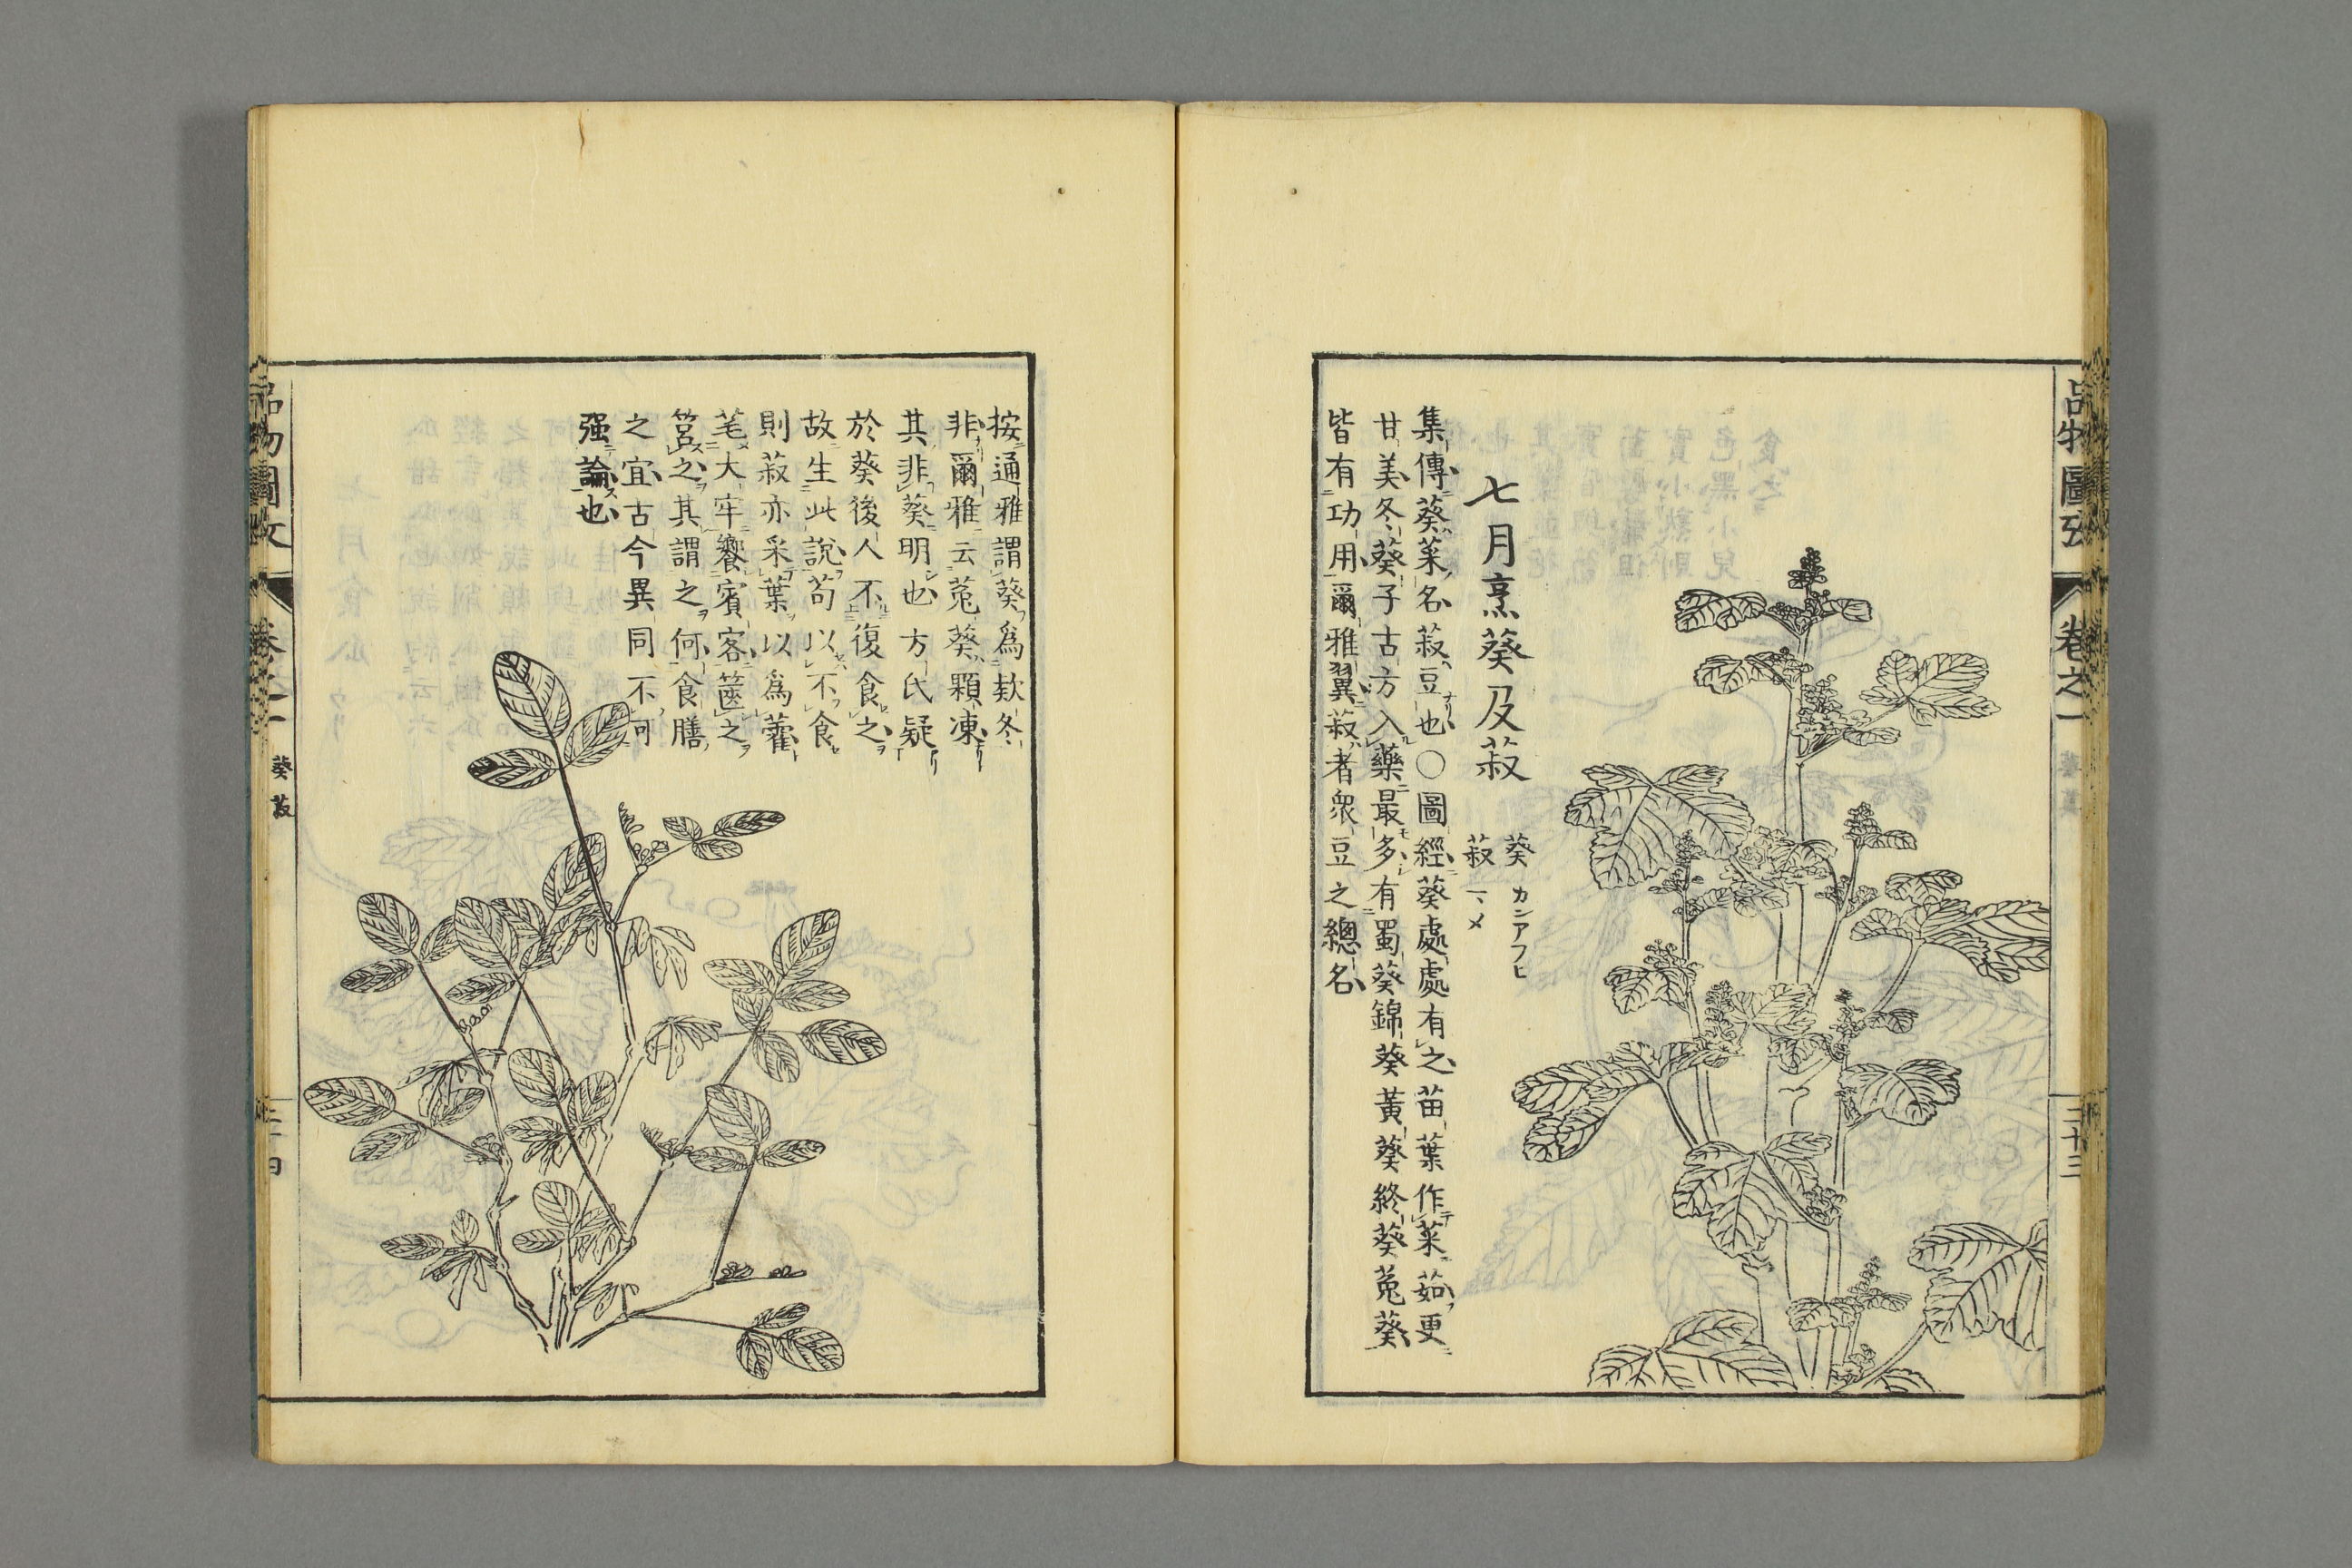 品物圖攷
卷之一
三十三
七月烹葵及菽
葵 カンアフヒ
菽 マメ
集傳葵菜名菽豆也○圖經葵處處有之苗葉作菜茹更
甘美冬葵子古方入藥最多有蜀葵錦葵黃葵終葵菟葵
皆有功用爾雅翼菽者衆豆之總名
按通雅謂葵爲款冬
非爾雅云菟葵顆凍
其非葵明也方氏疑
於葵後人不復食之
故生此說苟以不食
則菽亦采葉以爲藿
芼大牢饗賓客筐之
筥之其謂之何食膳
之宜古今異同不可
强論也
品物圖攷
卷之一
葵菽
三十四